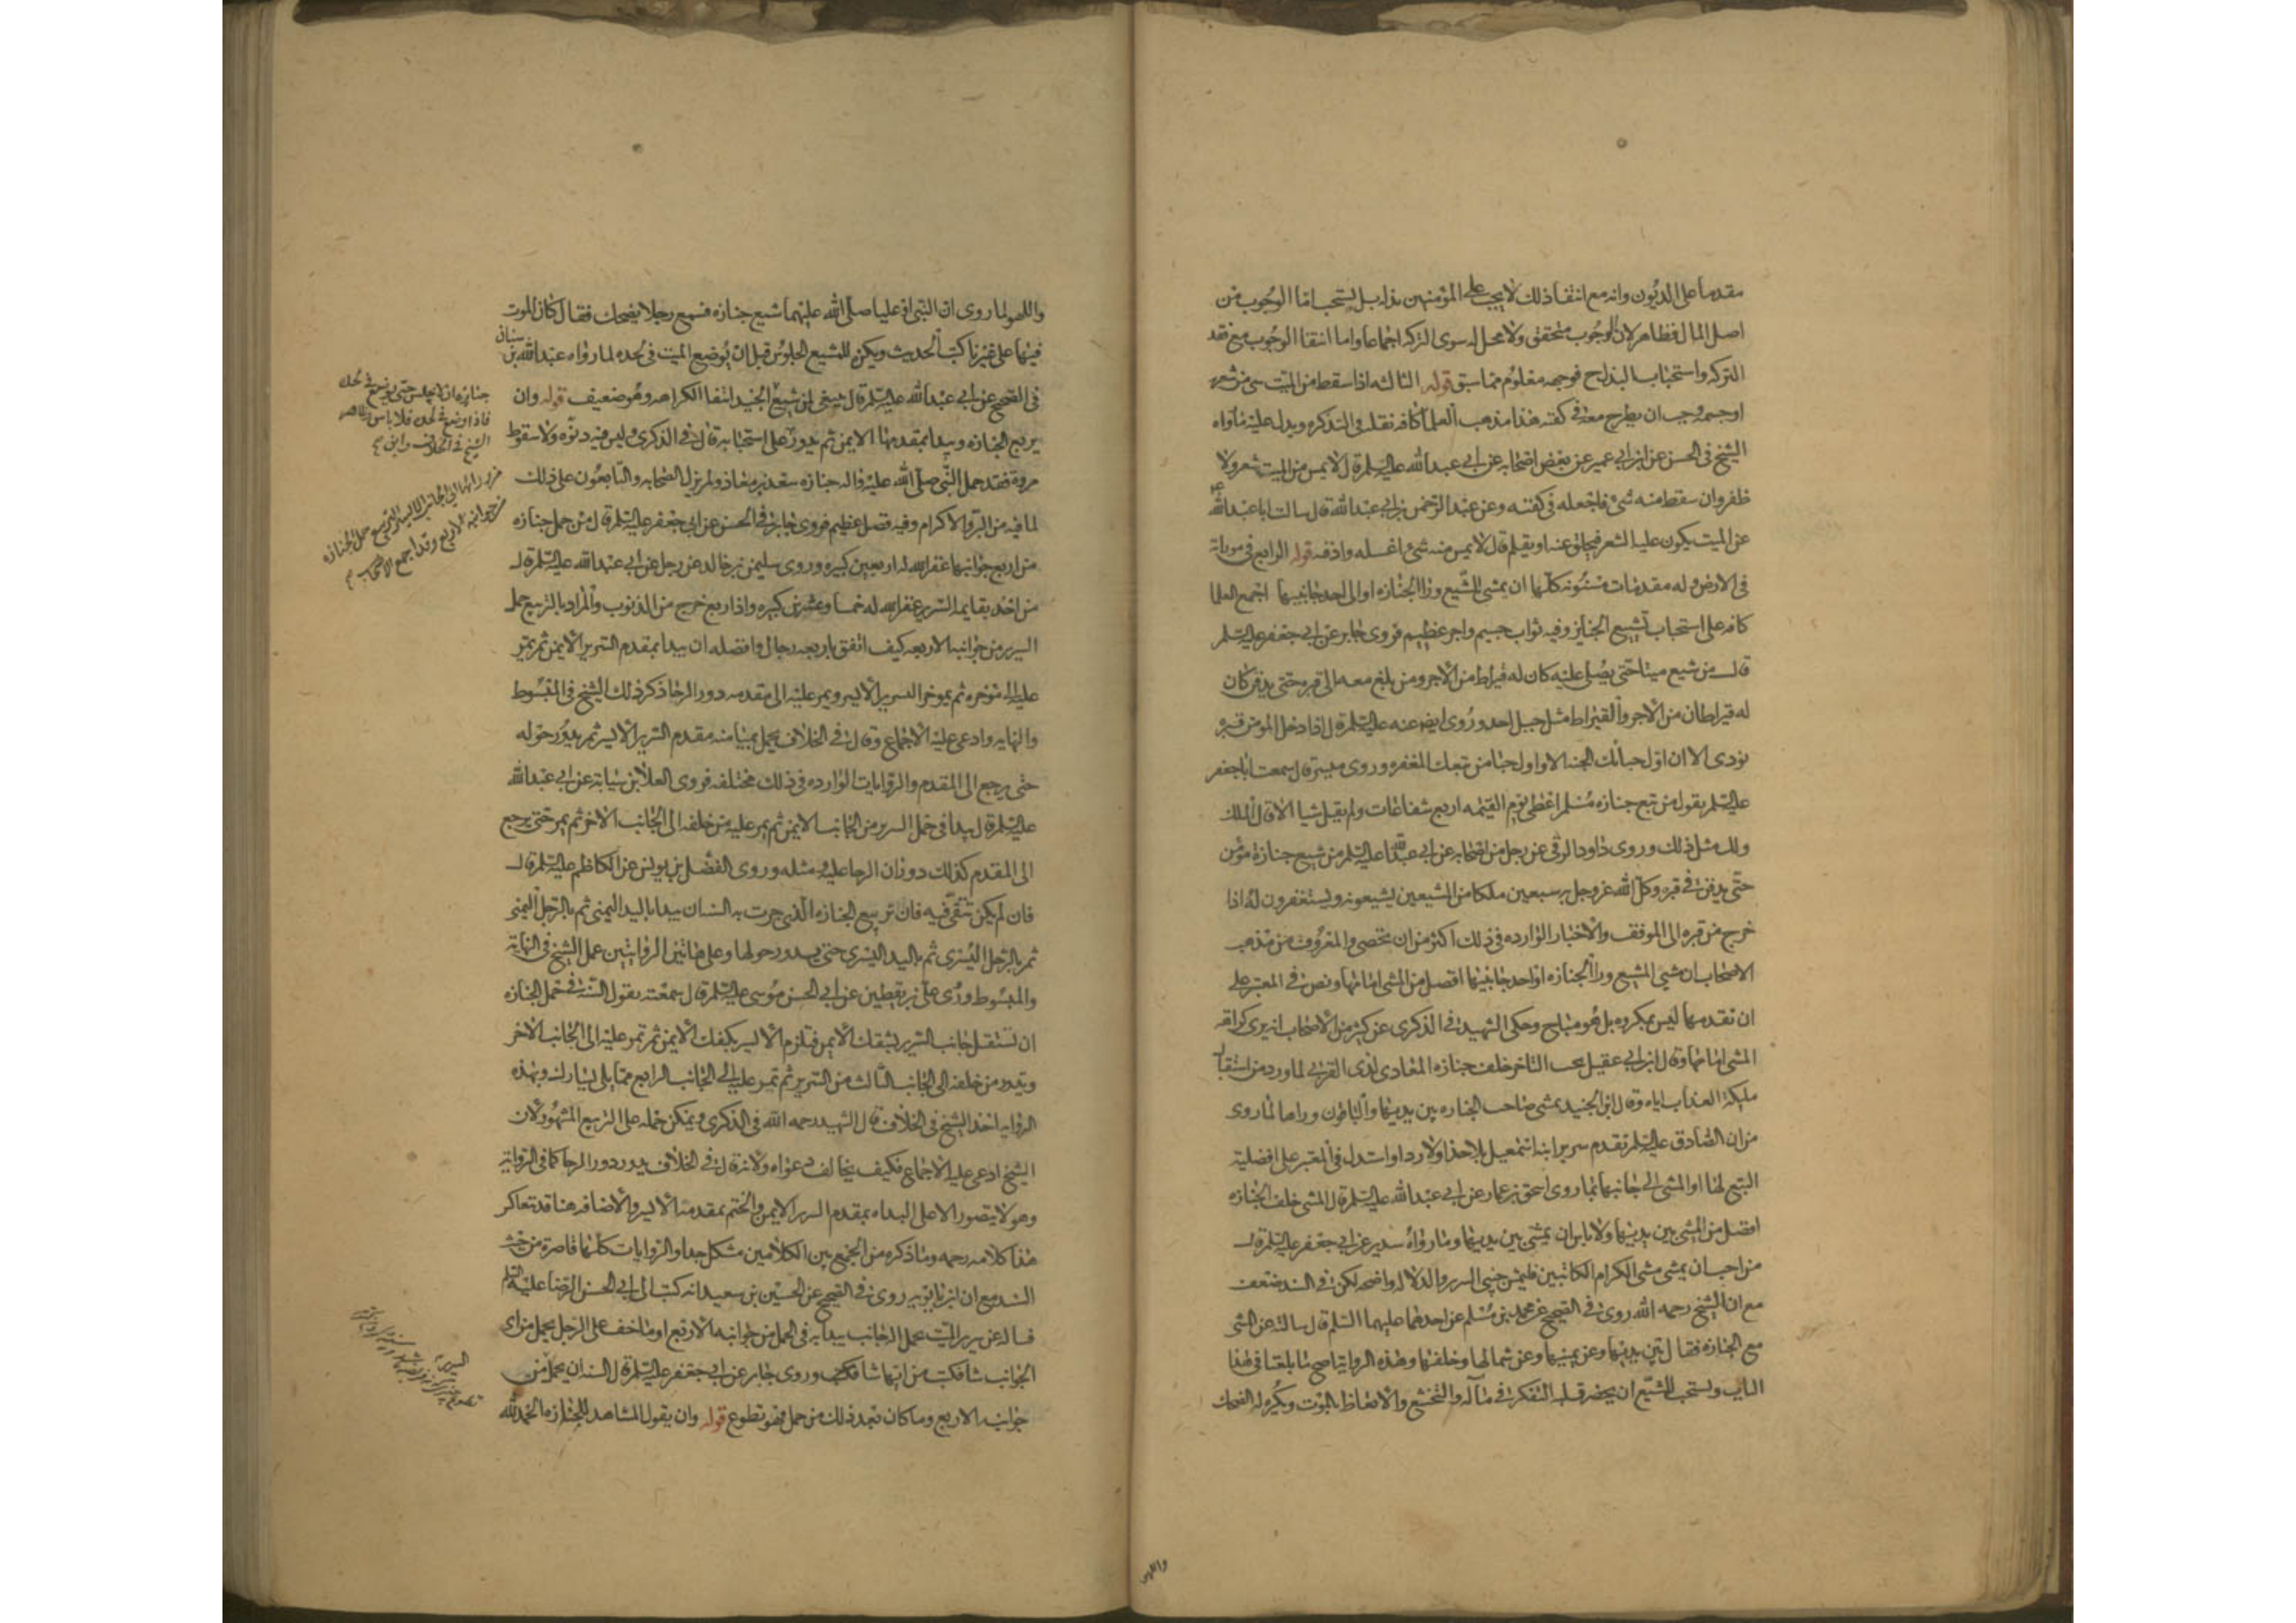 مقدما على الديون وانه مع انتفا ذلك لا يجب على المؤمنين بذله بل يستحب اما الوجوب من
اصل المال فظاهر لان الوجوب متحقق ولا محل له سوى التركه اجماعا واما انتفا الوجوب مع فقد
التركه واستحباب البذل ح فوجهه معلوم مما سبق قوله الثالثه اذا سقط من الميت شى من شعره
او جسمه وجب ان يطرح معه فى كفنه هذا مذهب العلما كافه نقله فى التذكره ويدل عليه ما رواه
الشيخ فى الحسن عن ابن ابى عمير عن بعض اصحابه عن ابى عبد الله عليه السلم قال لا يمس من الميت شعر ولا
ظفر وان سقط منه شئ فاجعله فى كفنه وعن عبد الرحمن بن ابى عبد الله قال سالت ابا عبد الله
عن الميت يكون عليه الشعر فيحلق عنه او يقلم قال لا يمس منه شئ اغسله وادفنه قوله الرابع فى مواراته
فى الارض وله مقدمات مسنونه كلها ان يمشى المشيع ورا الجنازه او الى احد جانبيها اجمع العلما
كافه على استحباب تشييع الجنايز وفيه ثواب جسيم واجر عظيم فروى جابر عن ابى جعفر عليه السلم
قال من شيع ميتا حتى يصلى عليه كان له قيراط من الاجر ومن بلغ معه الى قبره حتى يدفن كان
له قيراطان من الاجر والقيراط مثل جبل احد وروى ايضا عنه عليه السلم قال اذا دخل المومن قبره
نودى الا ان اول حبائك الجنه الا واول حبا من تبعك المغفره وروى ميسر قال سمعت ابا جعفر
عليه السلم يقول من تبع جنازه مسلم اعطى يوم القيمه اربع شفاعات ولم يقل شيا الا قال الملك
ولك مثل ذلك وروى داود الرقى عن رجل من اصحابه عن ابى عبد الله عليه السلم من شيع جنازة مؤمن
حتى يدفن فى قبره وكل الله عز وجل به سبعين ملكا من المشيعين يشيعونه ويستغفرون له اذا
خرج من قبره الى الموقف والاخبار الوارده فى ذلك اكثر من ان تحصى والمعروف من مذهب
الاصحاب ان مشى المشيع ورا الجنازه او احد جانبيها افضل من المشى امامها ونص فى المعتبر على
ان تقدمها ليس بمكروه بل هو مباح وحكى الشهيد فى الذكرى عن كثير من الاصحاب انه يرى كراهة
المشى امامها وقال ابن ابى عقيل يجب التاخر خلف جنازه المعادى لذى القربى لما ورد من استقبال
مليكة العذاب اياه وقال ابن الجنيد يمشى صاحب الجنازه بين يديها والباقون وراها لما روى
من ان الصادق عليه السلم تقدم سرير ابنه اسمعيل بلا حذا ولا ردا واستدل فى المعتبر على افضلية
التبع لها او المشى الى جانبها بما روى اسحق بن عمار عن ابى عبد الله عليه السلم قال المشى خلف الجنازه
افضل من المشى بين يديها ولا باس ان يمشى بين يديها وما رواه سدير عن ابى جعفر عليه السلم قال
من احب ان يمشى مشى الكرام الكاتبين فليمش جنبى السرير والدلاله واضحه لكن فى السند ضعف
مع ان الشيخ رحمه الله روى فى الصحيح عن محمد بن مسلم عن احدهما عليهما السلم قال سالته عن المشى
مع الجنازه فقال بين يديها وعن يمينها وعن شمالها وخلفها وهذه الرواية اصح ما بلغنا فى هذا
الباب ويستحب للمشيع ان يحضر قلبه التفكر فى مآله والتخشع والاتعاظ بالموت ويكره له الضحك
واللهو
واللهو لما روى ان النبى او عليا صلى الله عليهما شيع جنازه فسمع رجلا يضحك فقال كان الموت
فيها على غيرنا كتب الحديث ويكره للمشيع الجلوس قبل ان يوضع الميت فى لحده لما رواه عبد الله بن سنان
فى الصحيح عن ابى عبد الله عليه السلم قال ينبغى لمن شيع الجنيد انتفا الكراهه وهو ضعيف قوله وان
يربع الجنازه ويبدا بمقدمها الايمن ثم يدور على استحبابه قال فى الذكرى وليس فيه دنوه ولا سقوط
مروة فقد حمل النبى صلى الله عليه واله جنازه سعد بن معاذ ولم يزل الصحابه والتابعون على ذلك
لما فيه من البر والاكرام وفيه فضل عظيم فروى جابر فى الحسن عن ابى جعفر عليه السلم قال من حمل جنازه
من اربع جوانبها غفر الله له اربعين كبيره وروى سليمن بن خالد عن رجل عن ابى عبد الله عليه السلم قال
من اخذ بقايمه السرير غفر الله له خمسا وعشرين كبيره واذا ربع خرج من الذنوب والمراد بالتربيع حمل
السرير من جوانبه الاربعه كيف اتفق باربعه رجال وافضله ان يبدا بمقدم السرير الايمن ثم يمر
عليه الى موخره ثم بموخر السرير الايسر ويمر عليه الى مقدمه دور الرحا ذكر ذلك الشيخ فى المبسوط
والنهايه وادعى عليه الاجماع وقال فى الخلاف يحمل بميامنه مقدم السرير الايسر ثم يدور حوله
حتى يرجع الى المقدم والروايات الوارده فى ذلك مختلفه فروى العلا بن سيابة عن ابى عبد الله
عليه السلم قال يبدا فى حمل السرير من الجانب الايمن ثم يمر عليه من خلفه الى الجانب الاخر ثم يمر حتى يرجع
الى المقدم كذلك دوران الرحا عليه ومثله وروى الفضل بن يونس عن الكاظم عليه السلم قال
فان لم يكن تتقى فيه فان تربيع الجنازه الذى جرت به السنه ان يبدا باليد اليمنى ثم بالرجل اليمنى
ثم بالرجل اليسرى ثم باليد اليسرى حتى يدور حولها وعلى هاتين الروايتين عمل الشيخ فى النهاية
والمبسوط وروى على بن يقطين عن ابى الحسن موسى عليه السلم قال سمعته يقول السنة فى حمل الجنازه
ان تستقبل جانب السرير بشقك الايمن فتلزم الايسر بكفك الايمن ثم تمر عليه الى الجانب الاخر
وتدور من خلفه الى الجانب الثالث من السرير ثم تمر عليه الى الجانب الرابع مما يلى يسارك وبهذه
الروايه اخذ الشيخ فى الخلاف قال الشهيد رحمه الله فى الذكرى ويمكن حمله على التربيع المشهور لان
الشيخ ادعى عليه الاجماع فكيف يخالف دعواه ولانه قال فى الخلاف يدور دور الرحا كما فى الرواية
وهو لا يتصور الا على البداه بمقدم السرير الايمن والختم بمقدمه الايسر والاضافه هنا قد تتعاكس
هذا كلامه رحمه وما ذكره من الجمع بين الكلامين مشكل جدا والروايات كلها قاصرة من حيث
السند مع ان ابن بابويه روى فى الصحيح عن الحسين بن سعيد انه كتب الى ابى الحسن الرضا عليه السلم
يساله عن سرير الميت يحمل اله جانب يبدا به فى الحمل من جوانبه الاربع او ما خف على الرجل يحمل من اى
الجوانب شا فكتب من ايها شا فكتب وروى جابر عن ابى جعفر عليه السلم قال السنه ان يحمل من
جوانبه الاربع وما كان بعد ذلك من حمل فهو تطوع قوله وان يقول المشاهد للجنازه الحمد لله
جنازه ان لا يجلس حتى يوضع فى لحده
فاذا وضع فى لحده فلا باس وظاهر
الشيخ فى الخلاف وابن
من ورائها الى الجانب الايسر التربيع حمل الجنازه
من جوانبها الاربع وقد اجمع الاصحاب